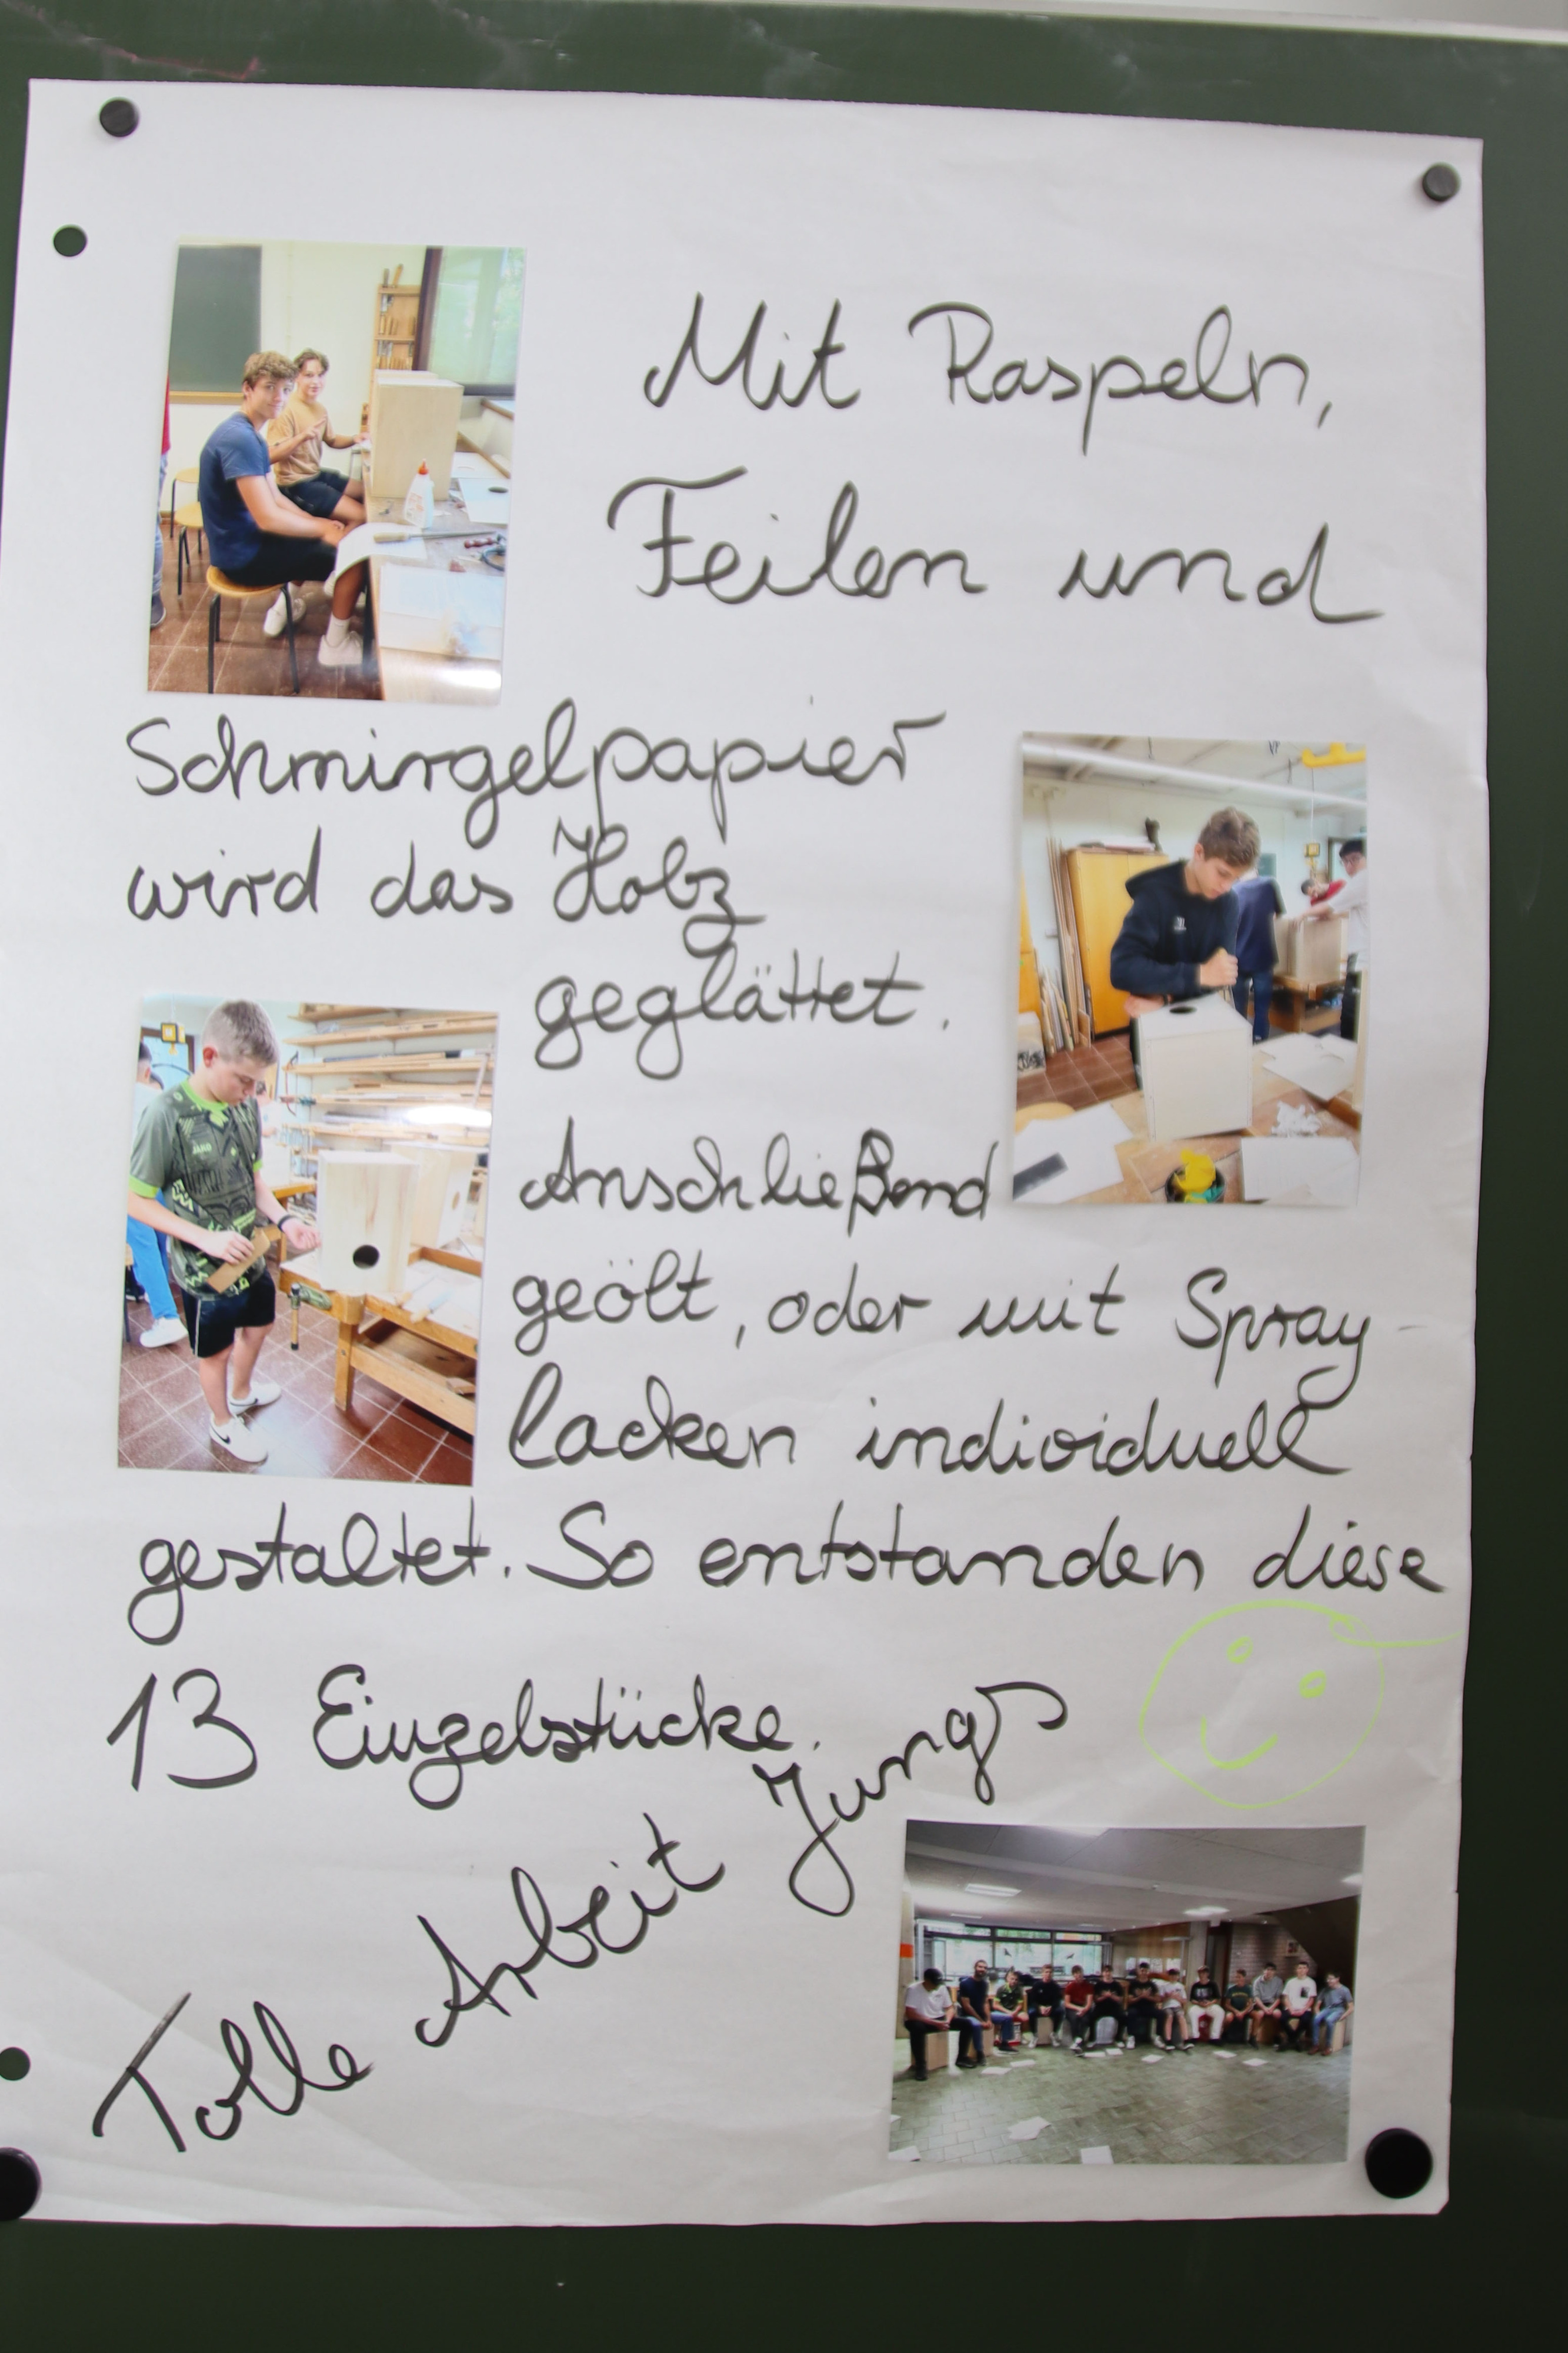 Mit Raspeln,
Feilen und
Schmirgelpapier
wird das Holz
geglättet.
Anschließend
geölt, oder mit Spray-
lacken individuell
gestaltet. So entstanden diese
13 Einzelstücke.
Tolle Arbeit Jungs
JAKO